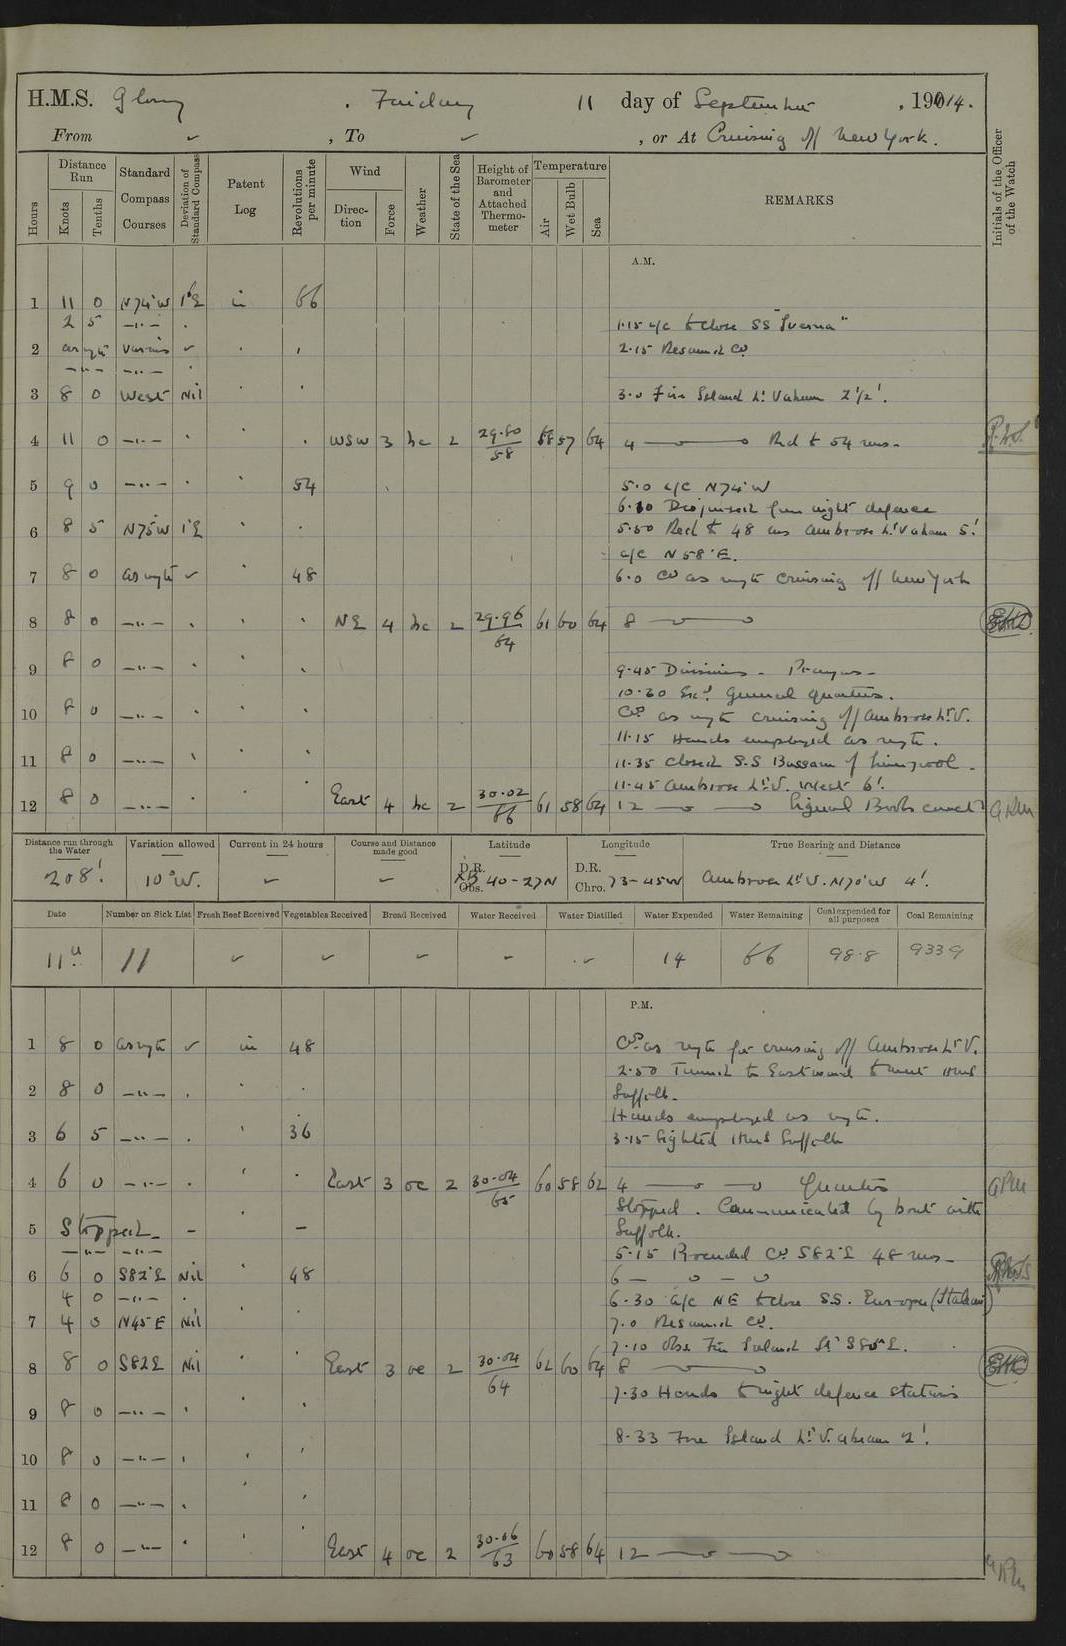 H.M.S. Glory , Friday 11 day of September , 1914.
From ✓ , To ✓ , or At Cruising off New York.
Hours
Distance Run
Knots
Tenths
Standard Compass Courses
Deviation of Standard Compass
Patent Log
Revolutions per minute
Wind
Direction
Force
Weather
State of the Sea
Height of Barometer and Attached Thermometer
Temperature
Air
Wet Bulb
Sea
REMARKS
Initials of the Officer of the Watch
A.M.
1 11 0 N74°W 1°E in 66
2 5 —"— 1.15 a/c to close SS
2 as reqte various ✓ 2.15 Resumed Co
—"— —"—
3 8 0 West Nil 3.0 Fire Island Lt. Vabeam 2 1/2'.
4 11 0 —"— WSW 3 bc 2 29.80/58 58 57 64 4 —o —o Red to 54 revs.
5 9 0 —"— 54 5.0 a/c N74°W
6.10 Disposed from night defence
6 8 5 N75W 1°E 5.50 Red to 48 revs Ambrose Lt. V abeam 5'.
a/c N58°E.
7 8 0 as reqte ✓ 48 6.0 Co as reqte cruising off New York
8 8 0 —"— NE 4 bc 2 29.96/64 61 60 64 8 —o —o
9 8 0 —"— 9.45 Divisions - Prayers -
10.30 Exd. General quarters.
10 8 0 —"— Cos as reqte cruising off Ambrose Lt. V.
11.15 Hands employed as reqte.
11 8 0 —"— 11.35 Closed S.S Bussam of Liverpool.
11.45 Ambrose Lt. V. West 6'.
12 8 0 —"— East 4 bc 2 30.02/66 61 58 64 12 —o —o Signal Books correct
Distance run through the Water
Variation allowed
Current in 24 hours
Course and Distance made good
Latitude
Longitude
True Bearing and Distance
208'. 10°W. ✓ ✓ D.R. Obs. 40-27N D.R. Chro. 73-45W Ambrose Lt V. N70°W 4'.
Date
Number on Sick List
Fresh Beef Received
Vegetables Received
Bread Received
Water Received
Water Distilled
Water Expended
Water Remaining
Coal expended for all purposes
Coal Remaining
11th 11 ✓ ✓ ✓ ✓ ✓ 14 66 98.8 9339
P.M.
1 8 0 as reqte ✓ in 48 Cos as reqte for cruising off Ambrose Lt V.
2.50 Turned to Eastward to meet HMS
2 8 0 —"— Suffolk.
Hands employed as reqte.
3 6 5 —"— 36 3.15 Sighted HMS Suffolk
4 6 0 —"— East 3 oc 2 30.04/65 60 58 62 4 —o —o Quarters
Stopped. Communicated by boat with
5 Stopped - - Suffolk.
—"— —"— 5.15 Proceeded Co S82°E 48 revs
6 6 0 S82°E Nil 48 6 — o — o
4 0 —"— 6.30 a/c NE to close S.S. Europa (Italian)
7 4 0 N45E Nil 7.0 Resumed Co.
7.10 Obs Fire Island Lt S85°E.
8 8 0 S82E Nil East 3 oc 2 30.04/64 62 60 64 8 —o
7.30 Hands to night defence stations
9 8 0 —"—
8.33 Fire Island Lt. V. abeam 2'.
10 8 0 —"—
11 8 0 —"—
12 8 0 —"— East 4 oc 2 30.06/63 60 58 64 12 —o —o